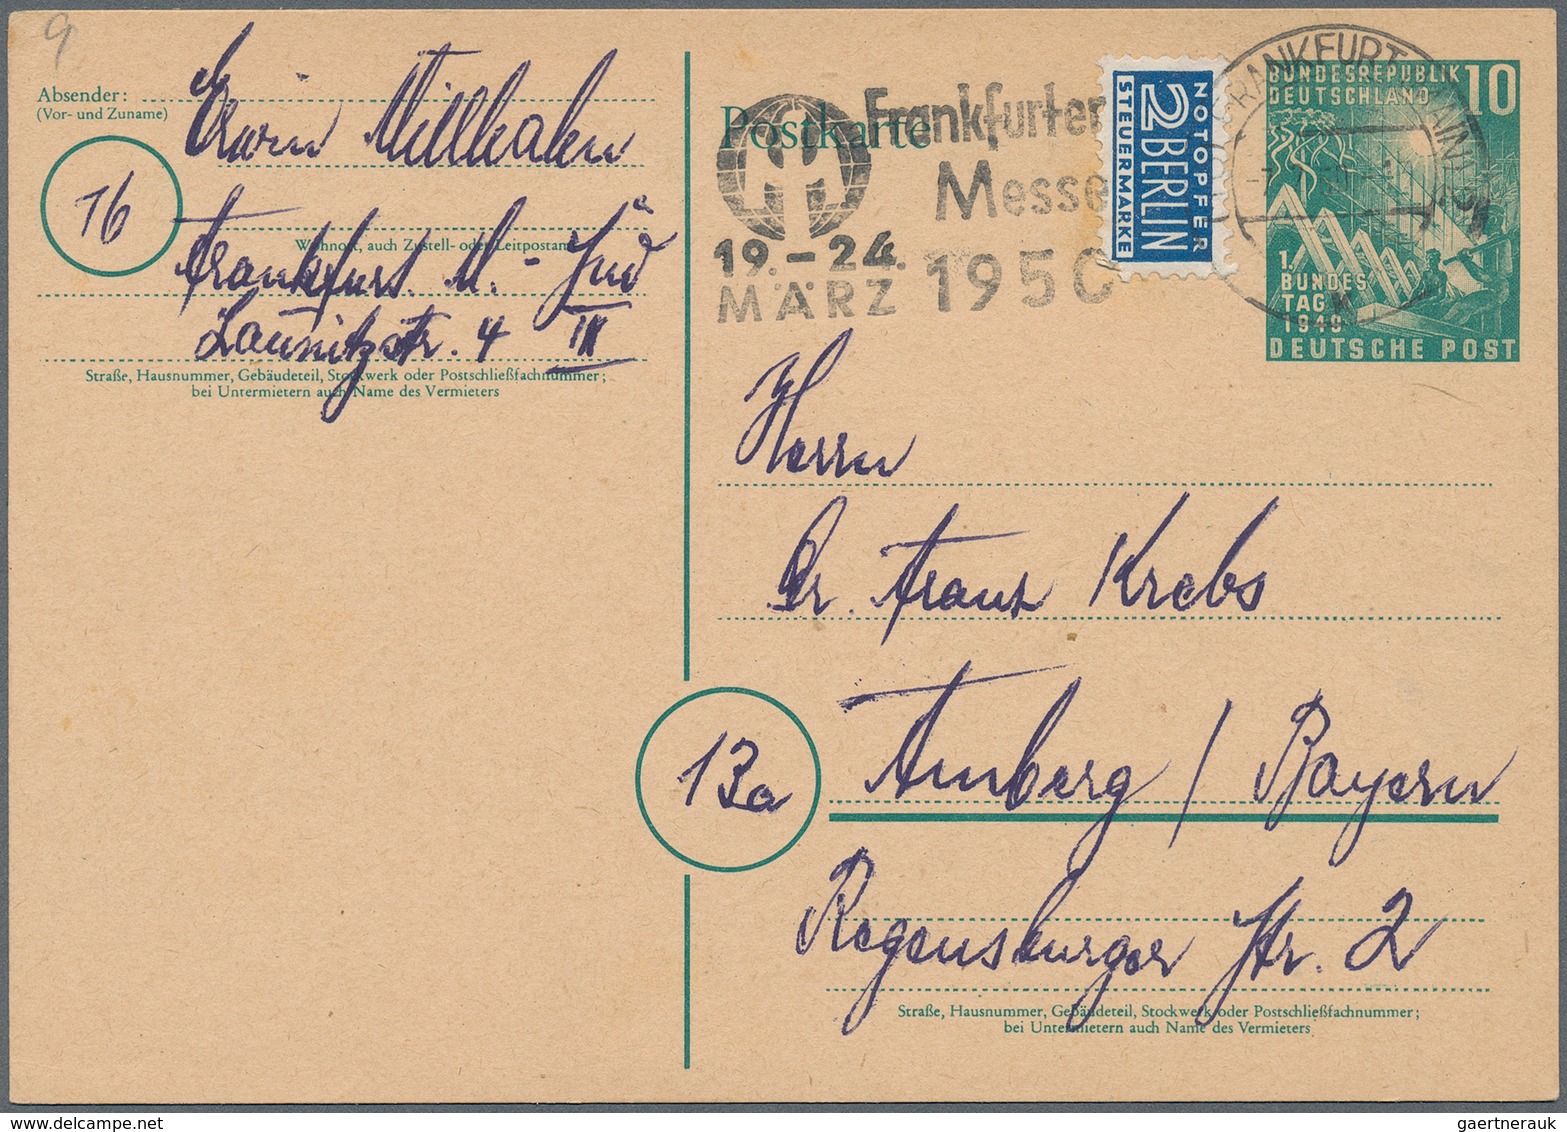 9
Absender:
(Vor- und Zuname)
Erwin
16
Wohnort, auch Zustell- oder Leitpostamt
Frankfurt. M. - Süd
Launitzstr. 4 III
Straße, Hausnummer, Gebäudeteil, Stockwerk oder Postschließfachnummer;
bei Untermietern auch Name des Vermieters
Postkarte
Frankfurter
Messe
19.-24.
MÄRZ 1950
NOTOPFER
2 BERLIN
STEUERMARKE
FRANKFURT (MAIN)
BUNDESREPUBLIK
DEUTSCHLAND
10
1.
BUNDES
TAG
1949
DEUTSCHE POST
Herrn
Dr. Franz Krebs
13a
Amberg / Bayern
Regensburger Str. 2
Straße, Hausnummer, Gebäudeteil, Stockwerk oder Postschließfachnummer;
bei Untermietern auch Name des Vermieters
gaertnerauk